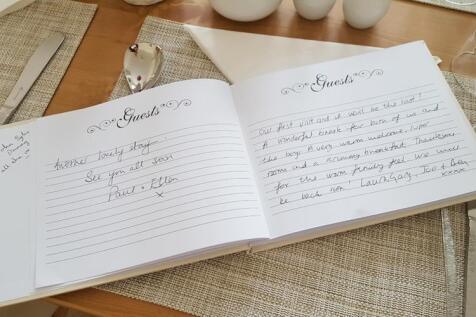 Guests
Another lovely stay
See you all soon
Paul + Ellen
x
Guests
Our first visit and it wont be the last!
A wonderful break for both of us and
the boy. A very warm welcome, super
room and a yummy breakfast. Thankyou
for the warm family feel. We will
be back soon!
xxxx